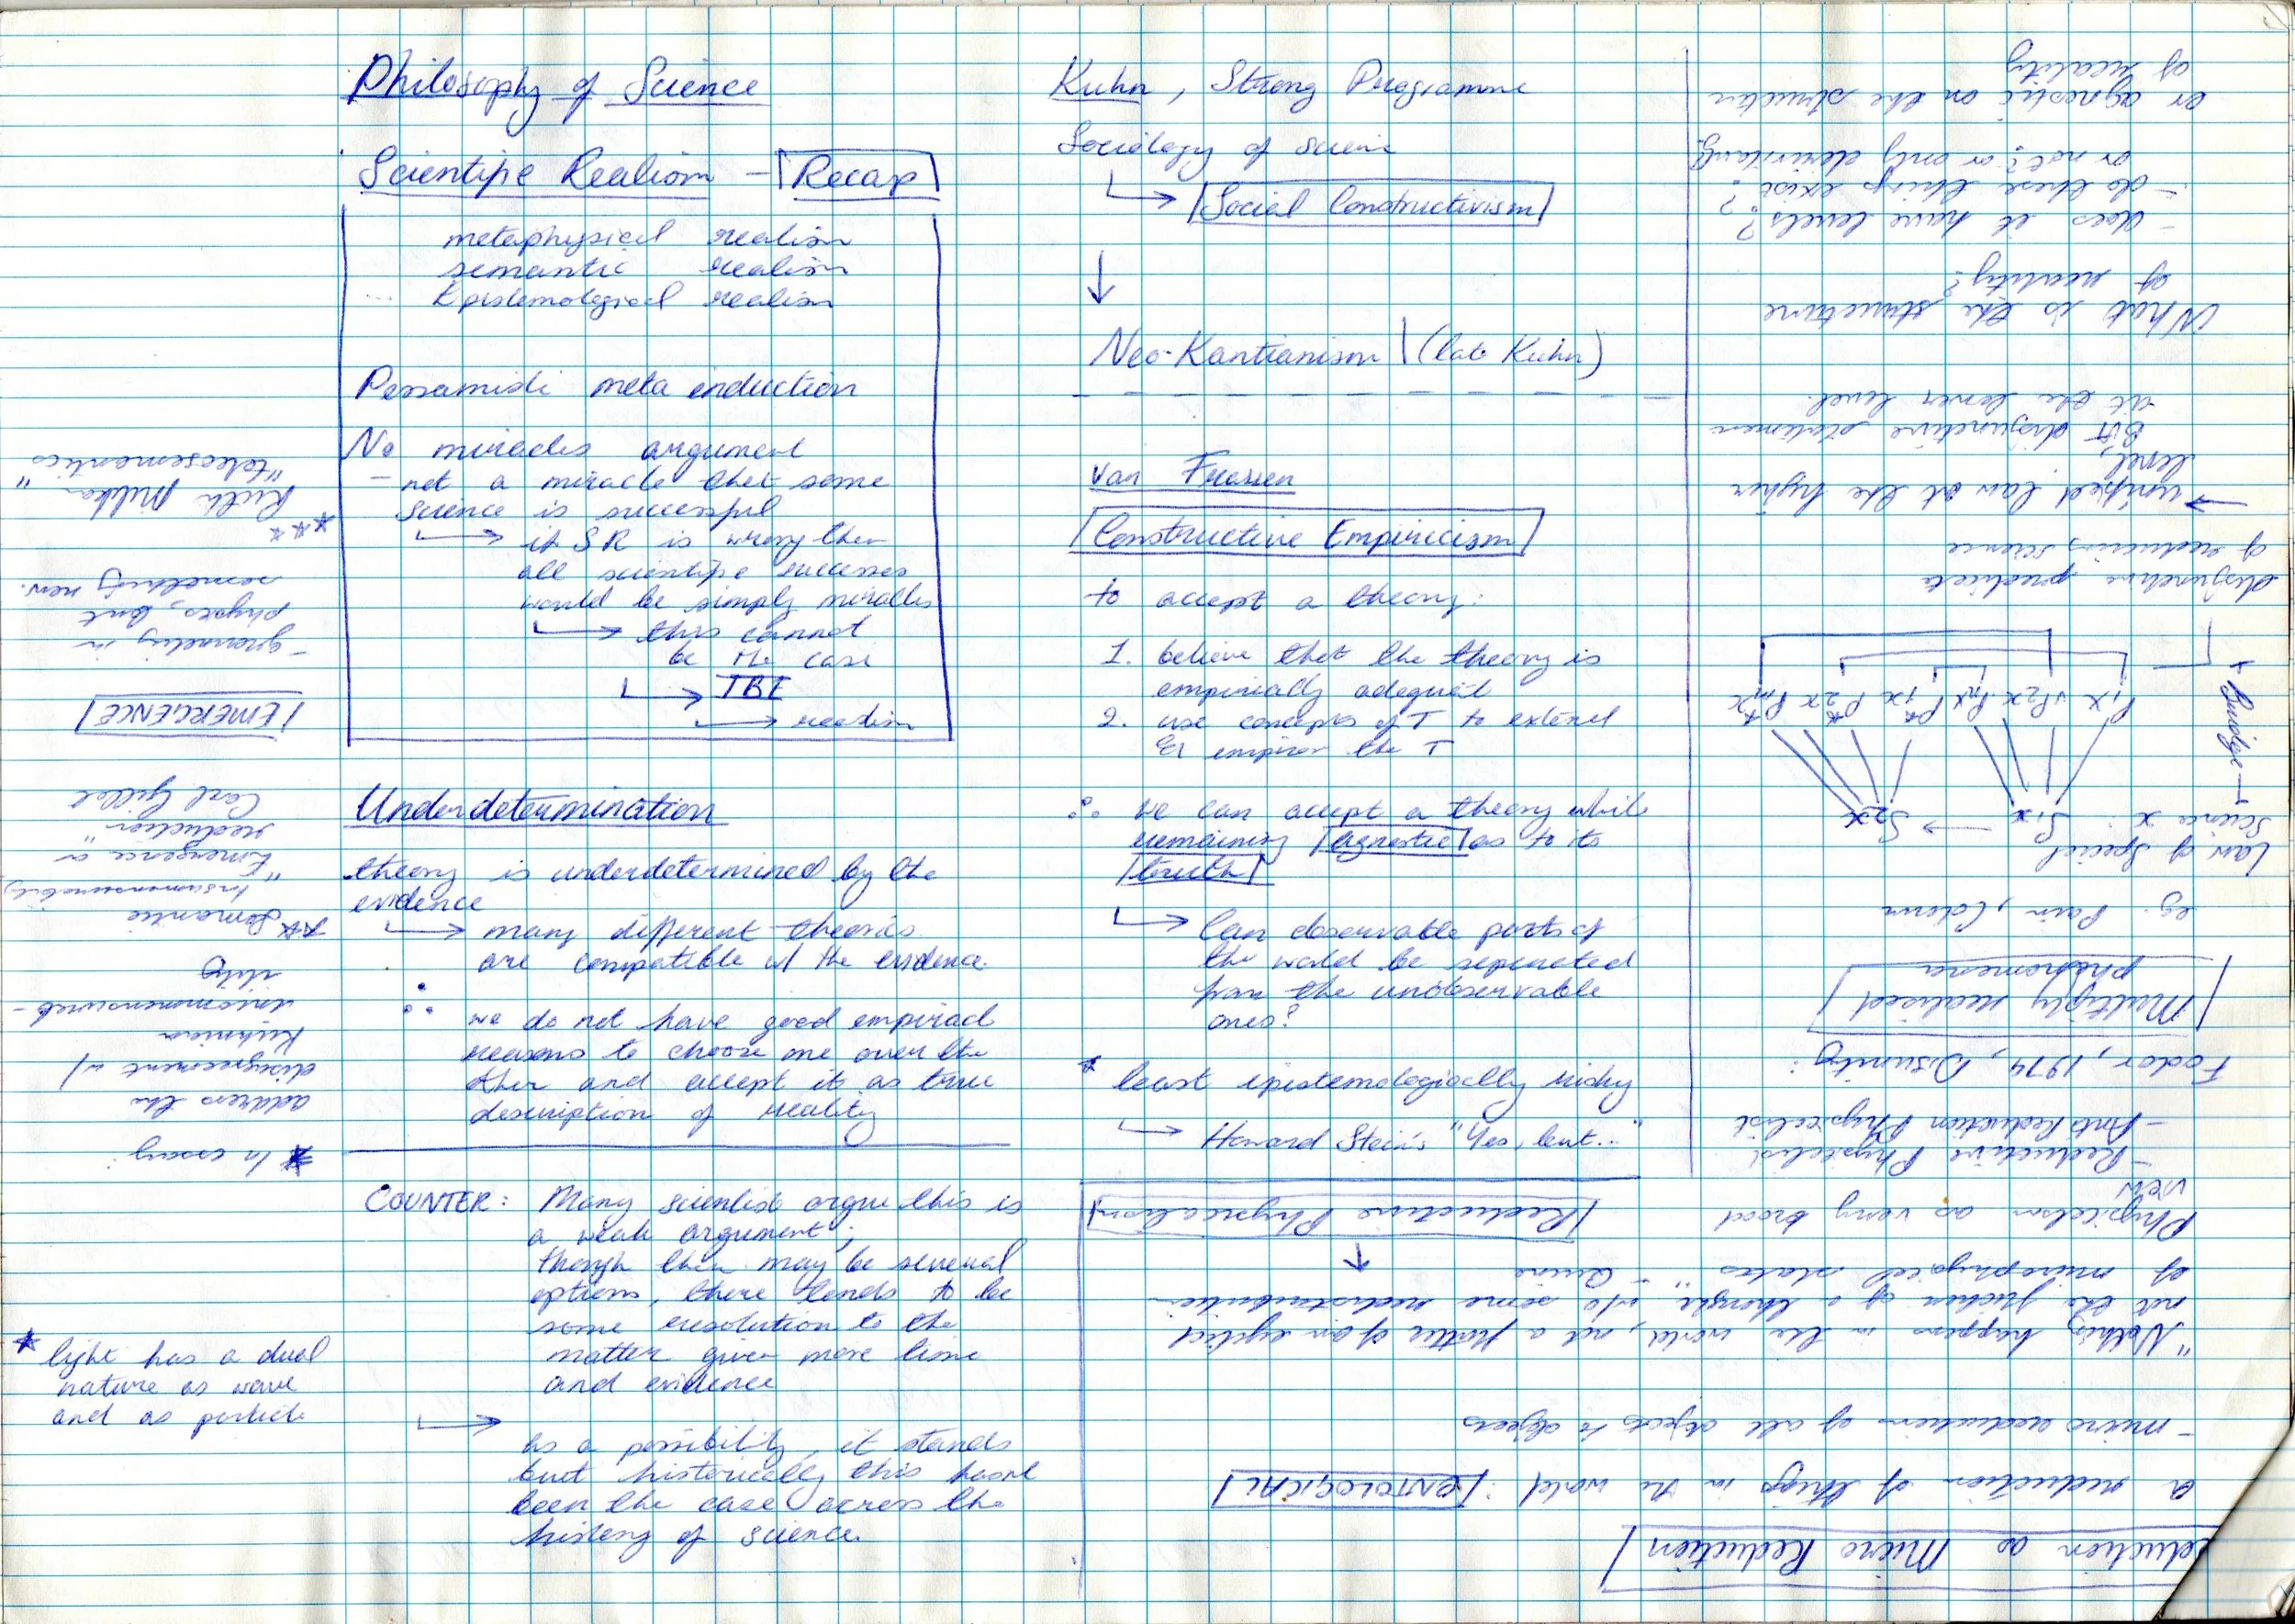 Philosophy of Science
Scientific Realism - Recap
metaphysical realism
semantic realism
Epistemological realism
meta induction
No miracles argument
- not a miracle that some
science is successful
if SR is wrong then
all scientific successes
would be simply miracles
this cannot
be the case
IBE
realism
Underdetermination
theory is underdetermined by the
evidence
many different theories
are compatible w/ the evidence.
∴ we do not have good empirical
reasons to choose one over the
other and accept it as true
description of reality
COUNTER: Many scientist argue this is
a weak argument;
though there may be several
options, there tends to be
some resolution to the
matter given more time
and evidence
As a possibility, it stands
but historically this hasnt
been the case across the
history of science.
* light has a dual
nature as wave
and as particle
Kuhn, Strong Programme
Sociology of science
Social Constructivism
Neo-Kantianism (late Kuhn)
Van Fraassen
Constructive Empiricism
to accept a theory:
1. believe that the theory is
empirically adequate
2. use concepts of T to extend
the T
∴ we can accept a theory while
remaining agnostic as to its
truth
Can observable parts of
the world be separated
from the unobservable
ones?
* least epistemologically risky
Howard Stein's "Yes, but..."
Reduction as Micro Reduction
a reduction of things in the world: ONTOLOGICAL
- micro reduction of all objects to objects
"Nothing happens in the world, not a flutter of an eyelid
not the flicker of a thought, w/o some redistribution
of microphysical states" - Quine
Reductive Physicalism
Physicalism as very broad
view
- Reductive Physicalist
- Anti Reduction Physicalist
Fodor, 1974, Disunity:
Multiply realised
phenomena
eg. Pain, Colour
Law of Special
Science x: S1x → S2x
Bridge
P1x P2x Pnx P*1x P*2x P*mx
disjunctive predicate
of reducing science
→ unified law at the higher
level,
BUT disjunctive statement
at the lower level.
What is the structure
of reality?
- does it have levels?
- do these things exist?
or not? or only
or agnostic on the structure
of reality
* In essay:
address the
disagreement w/
Kuhnian
incommensurab-
ility
** Semantic
Incommensurability
"Emergence or
reduction"
Carl Gillet
EMERGENCE
- grounding in
physics, but
something new.
*** Ruth Millikan
"teleosemantics"